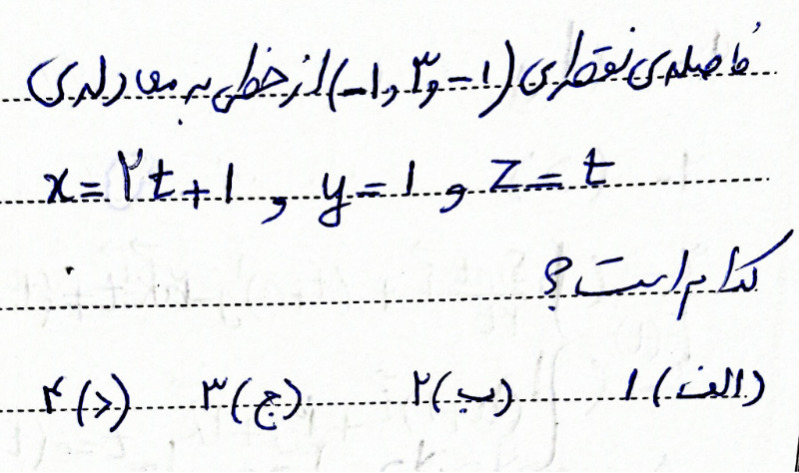 فاصله‌ی نقطه‌ی (-۱, ۳, -۱) از خطی به معادله‌ی
x = ۲t + ۱ , y = ۱ , z = t
کدام است؟
(الف) ۱ (ب) ۲ (ج) ۳ (د) ۴